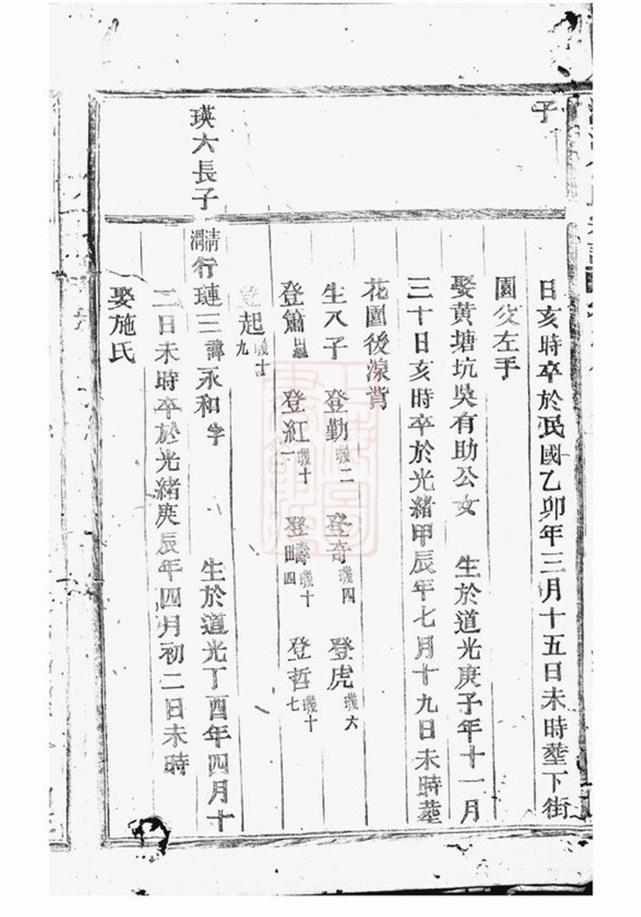 子
日亥時卒於民國乙卯年三月十五日未時塟下街
園父左手
娶黄塘坑吳有助公女 生於道光庚子年十一月
三十日亥時卒於光緒甲辰年七月十九日未時塟
花園後湶背
生八子 登勤璣二 登奇璣四 登虎璣六
登簫 登紅璣十一 登疇璣十四 登哲璣十七
登起璣十九
瑛六長子 清渭行璉三諱永和字 生於道光丁酉年四月十
二日未時卒於光緒庚辰年四月初二日未時
娶施氏